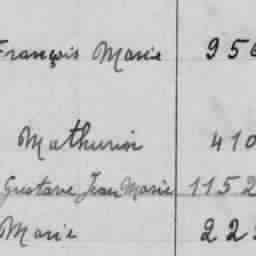 François Marie 956
Mathurin 410
Gustave Jean Marie 1152
Marie 222